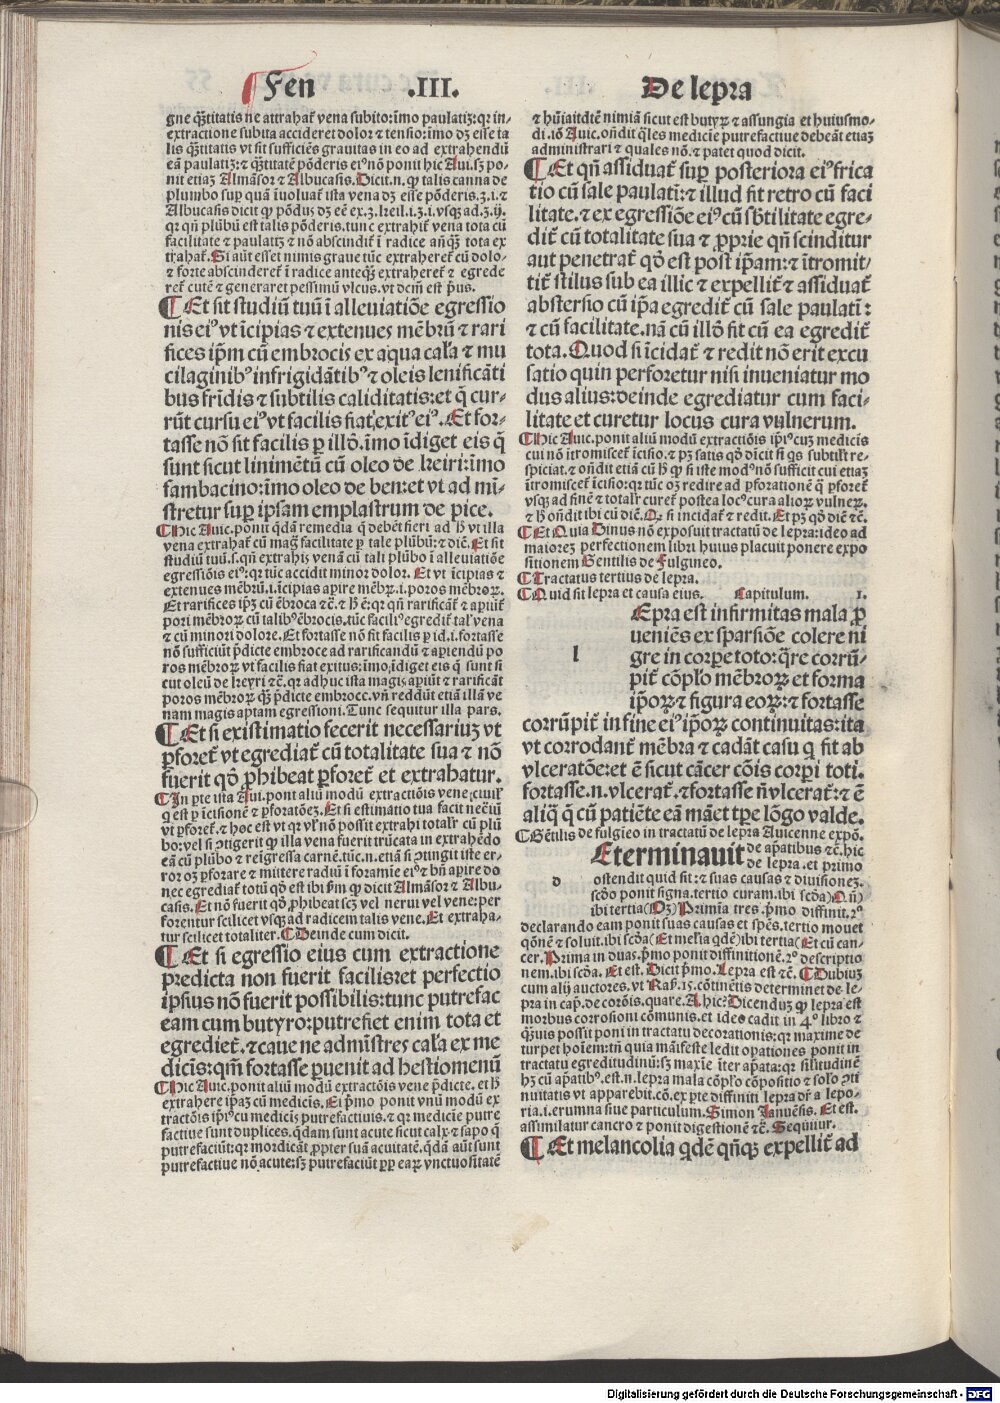 Fen .III. De lepra
gne q̃ꝫtitatis ne attrahat᷑ vena subito: īmo paulatiꝫ: qꝛ in-
extractione subita accideret dolor ⁊ tensio: īmo dꝫ esse ta
lis q̃ꝫtitatis vt sit sufficiēs grauitas in eo ad extrahendū
eā paulatiꝫ: ⁊ q̃ꝫtitatē pōderis eiꝰ nō ponit hic Aui. sꝫ po-
nit etiaꝫ Almāsor ⁊ Albucasis. Dicit. n. ꝙ talis canna de
plumbo suꝑ quā īuoluat᷑ ista vena dꝫ esse pōderis. ʒ. i. ⁊
Albucasis dicit ꝙ pōdꝰ dꝫ eē ex. ʒ.
qꝛ qn̄ plūbū est talis pōderis. tunc extrahit᷑ vena tota cū
facilitate ⁊ paulatiꝫ ⁊ nō abscindit᷑ ī radice an̄qꝫ tota ex
trahat᷑. Si aūt esset nimis graue tūc extraheret᷑ cū dolo-
⁊ forte abscinderet᷑ ī radice anteqꝫ extraheret᷑ ⁊ egrede
ret᷑ cutē ⁊ generaret pessimū vlcus. vt dcm̄ est p̄us.
¶ Et sit studiū tuū ī alleuiatiōe egressio
nis eiꝰ vt īcipias ⁊ extenues mēbrū ⁊ rari
fices ip̄m cū embrocis ex aqua cal'a ⁊ mu
cilaginibꝰ infrigidātibꝰ ⁊ oleis lenificāti
bus fr̄idis ⁊ subtilis caliditatis: et q̄ cur-
rūt cursu eiꝰ vt facilis fiat exitꝰ eiꝰ. Et for-
tasse nō sit facilis ꝑ illō. īmo īdiget eis q̄
sunt sicut linimētū cū oleo de keiri: īmo
sambacino: īmo oleo de ben: et vt ad mī-
stretur suꝑ ipsam emplastrum de pice.
¶ Hic Auic. ponit q̄dā remedia q̄ debēt fieri ad hͦ vt illa
vena extrahat᷑ cū mag᷑ facilitate ꝑ tale plūbū: ⁊ diē. Et sit
studiū tuū. s. qn̄ extrahis venā cū tali plūbo ī alleuiatiōe
egressiōis eiꝰ: qꝛ tūc accidit minor dolor. Et vt īcipias ⁊
extenues mēbrū. i. īcipias aꝑire mēbꝝ. i. poros mēbroꝝ.
Et rarifices ip̄ꝫ cū ēbroca ⁊c̄. ⁊ hͦ ē: qꝛ qn̄ rarificāt᷑ ⁊ apiūt᷑
pori mēbroꝝ cū talibꝰ ēbrocis. tūc faciliꝰ egredit᷑ tal' vena
⁊ cū minori dolore. Et fortasse nō sit facilis ꝑ id. i. fortasse
nō sufficiūt p̄dicte embroce ad rarificandū ⁊ apiendū po
ros mēbroꝝ vt facilis fiat exitus: īmo īdiget eis q̄ sunt si
cut oleū de keyri ⁊c̄. qꝛ adhuc ista magis apiūt ⁊ rarificāt
poros mēbroꝝ qꝫ p̄dicte embroce. vn̄ reddūt etiā illā ve
nam magis aptam egressioni. Tunc sequitur illa pars.
¶ Et si existimatio fecerit necessariuꝫ vt
ꝑforet᷑ vt egrediat᷑ cū totalitate sua ⁊ nō
fuerit qͦ ꝓhibeat ꝑforet᷑ et extrahatur.
¶ In ꝑte ista Aui. ponit aliū modū extractiōis vene cruil'
q̄ est ꝑ īcisionē ⁊ ꝑforatōeꝫ. Et si estimatio tua facit nec̄iū
vt ꝑforet᷑. ⁊ hoc est vt qꝛ vl' nō possit extrahi totalr̄ cū plū
bo: vel si ꝯtigerit ꝙ illa vena fuerit trūcata in extrahēdo
eā cū plūbo ⁊ reīgressa carnē. tūc. n. etiā si ꝯtingit iste er-
ror oꝫ ꝑforare ⁊ mittere radiū ī foramie eiꝰ ⁊ bn̄ aꝑire do
nec egrediat᷑ totū qͦ est ibi ꝑm̄ ꝙ dicit Almāsor ⁊ Albu-
casis. Et nō fuerit qͦ ꝓhibeat scꝫ vel nerui vel vene: per
forentur scilicet vsqꝫ ad radicem talis vene. Et extraha-
tur scilicet totaliter. ¶ Deinde cum dicit.
¶ Et si egressio eius cum extractione
predicta non fuerit facilis: et perfectio
ipsius nō fuerit possibilis: tunc putrefac
eam cum butyro: putrefiet enim tota et
egrediet᷑. ⁊ caue ne adm̄istres cal'a ex me
dicīs: qm̄ fortasse ꝑuenit ad hestiomenū
¶ Hic Auic. ponit aliū modū extractōis vene p̄dicte. et hͦ
extrahere ip̄aꝫ cū medicis. Ei p̄mo ponit vnū modū ex
tractōis ip̄iꝰ cū medicis putrefactiuis. ⁊ qꝛ medicie putre
factiue sunt duplices. q̄dam sunt acute sicut calx ⁊ sapo q̄
putrefaciūt: qꝛ mordicāt ꝓpter suā acuitatē. q̄dā aūt sunt
putrefactiue nō acute: sꝫ putrefaciūt ꝓp̄ eaꝝ vnctuositatē
⁊ hūiditatē nimiā sicut est butyꝝ ⁊ assungia et huiusmo-
di. iō Auic. on̄dit q̄les medicīe putrefactiue debeāt etiaꝫ
administrari ⁊ quales nō. ⁊ patet quod dicit.
¶ Et qn̄ assiduat᷑ suꝑ posteriora eiꝰ frica
tio cū sale paulatī: ⁊ illud fit retro cū faci
litate. ⁊ ex egressiōe eiꝰ cū sb̄tilitate egre-
dit᷑ cū totalitate sua ⁊ ꝓprie qn̄ scinditur
aut penetrat᷑ qͦ est post ip̄am: ⁊ ītromit-
tit᷑ stilus sub ea illic ⁊ expellit᷑ ⁊ assiduat᷑
abstersio cū ip̄a egredit᷑ cū sale paulatī:
⁊ cū facilitate. nā cū illō fit cū ea egredit᷑
tota. Quod si īcidat᷑ ⁊ redit nō erit excu
satio quin perforetur nisi inueniatur mo
dus alius: deinde egrediatur cum faci-
litate et curetur locus cura vulnerum.
¶ Hic Auic. ponit aliū modū extractiōis ip̄iꝰ cuꝫ medicīs
cui nō ītromiscet᷑ īcisio. ⁊ pꝫ satis qͦ dicit si qͥs subtilr̄ re-
spiciat. ⁊ on̄dit etiā cū hͦ ꝙ si iste modꝰ nō sufficit cui etiaꝫ
ītromiscet᷑ īcisio: qꝛ tūc oꝫ redire ad ꝑforationē q̄ ꝑforet᷑
vsqꝫ ad finē ⁊ totalr̄ curet᷑ postea locꝰ cura alioꝝ vulneꝝ.
⁊ hͦ on̄dit ibi cū diē. Qͦ si incidat᷑ ⁊ redit. Et pꝫ qͦ diē ⁊c̄.
¶ Et Quia Dinus nō exposuit tractatū de lepra: ideo ad
maioreꝫ perfectionem libri huius placuit ponere expo
sitionem Gentilis de Fulgineo.
¶ Tractatus tertius de lepra.
¶ Quid sit lepra et causa eius. Capitulum. 1.
l Epra est infirmitas mala ꝓ
ueniēs ex sparsiōe colere ni
gre in corꝑe toto: qͣre corrū-
pit᷑ cōplō mēbroꝝ et forma
ip̄oꝝ ⁊ figura eoꝝ: ⁊ fortasse
corrūpit᷑ in fine eiꝰ ip̄oꝝ continuitas: ita
vt corrodant᷑ mēbra ⁊ cadāt casu q̄ fit ab
vlceratōe: et ē sicut cācer cōis corꝑi toti.
fortasse. n. vlcerat᷑. ⁊ fortasse n̄ vlcerat᷑: ⁊ ē
aliq̄ q̄ cū patiēte eā māet tꝑe lōgo valde.
¶ Gētilis de fulgīeo in tractatū de lepra Auicenne expō.
d Eterminauit de ap̄atibus ⁊c̄. hic
de lepra. et primo
ostendit quid sit: ⁊ suas causas ⁊ diuisioneꝫ.
scd̄o ponit signa. tertio curam. ibi scd̄a) O. n̄)
ibi tertia (Oꝫ) Primīa tres. p̄mo diffinit. 2º
declarando eam ponit suas causas et sp̄es. tertio mouet
qōnē ⁊ soluit. ibi scd̄a (Et melīa qdē) ibi tertia (Et cū can-
cer. Prima in duas. p̄mo ponit diffinitionē. 2º descriptio
nem. ibi scd̄a. Et est. Dicit p̄mo. Lepra est ⁊c̄. ¶ Dubiuꝫ
cum alij auctores. vt Raẜ. 15. cōtinētis determinet de le-
pra in cap̄. de corōis. quare. A. hic? Dicenduꝫ ꝙ lepra est
morbus corrosioni cōmunis. et ideo cadit in 4º libro ⁊
q̄uis possit poni in tractatu decorationis: qꝛ maxime de
turpet hoīem: tn̄ quia māifeste ledit oꝑationes ponit in
tractatu egreditudinū: sꝫ maxīe īter ap̄ata: qꝛ sil'itudinē
hꝫ cū ap̄atibꝰ. est. n. lepra mala cōplō cōpositio ⁊ solō ꝯti
nuitatis vt apparebit. cō. ex ꝑte diffiniti lepra dr̄ a lepo-
ria. i. erumna siue particulum. Simon Januēsis. Et est.
assimilatur cancro ⁊ ponit digestionē ⁊c̄. Sequitur.
¶ Et melancolia qͥdē qn̄qꝫ expellit᷑ ad
Digitalisierung gefördert durch die Deutsche Forschungsgemeinschaft - DFG